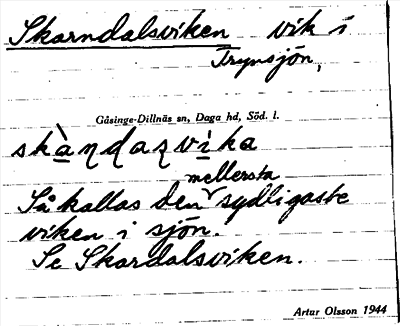 Skarndalsviken vik i
Trynsjön,
Gåsinge-Dillnäs sn, Daga hd, Söd. l.
skàņdaʐvika
Så kallas den mellersta sydligaste
viken i sjön.
Se Skardalsviken.
Artur Olsson 1944